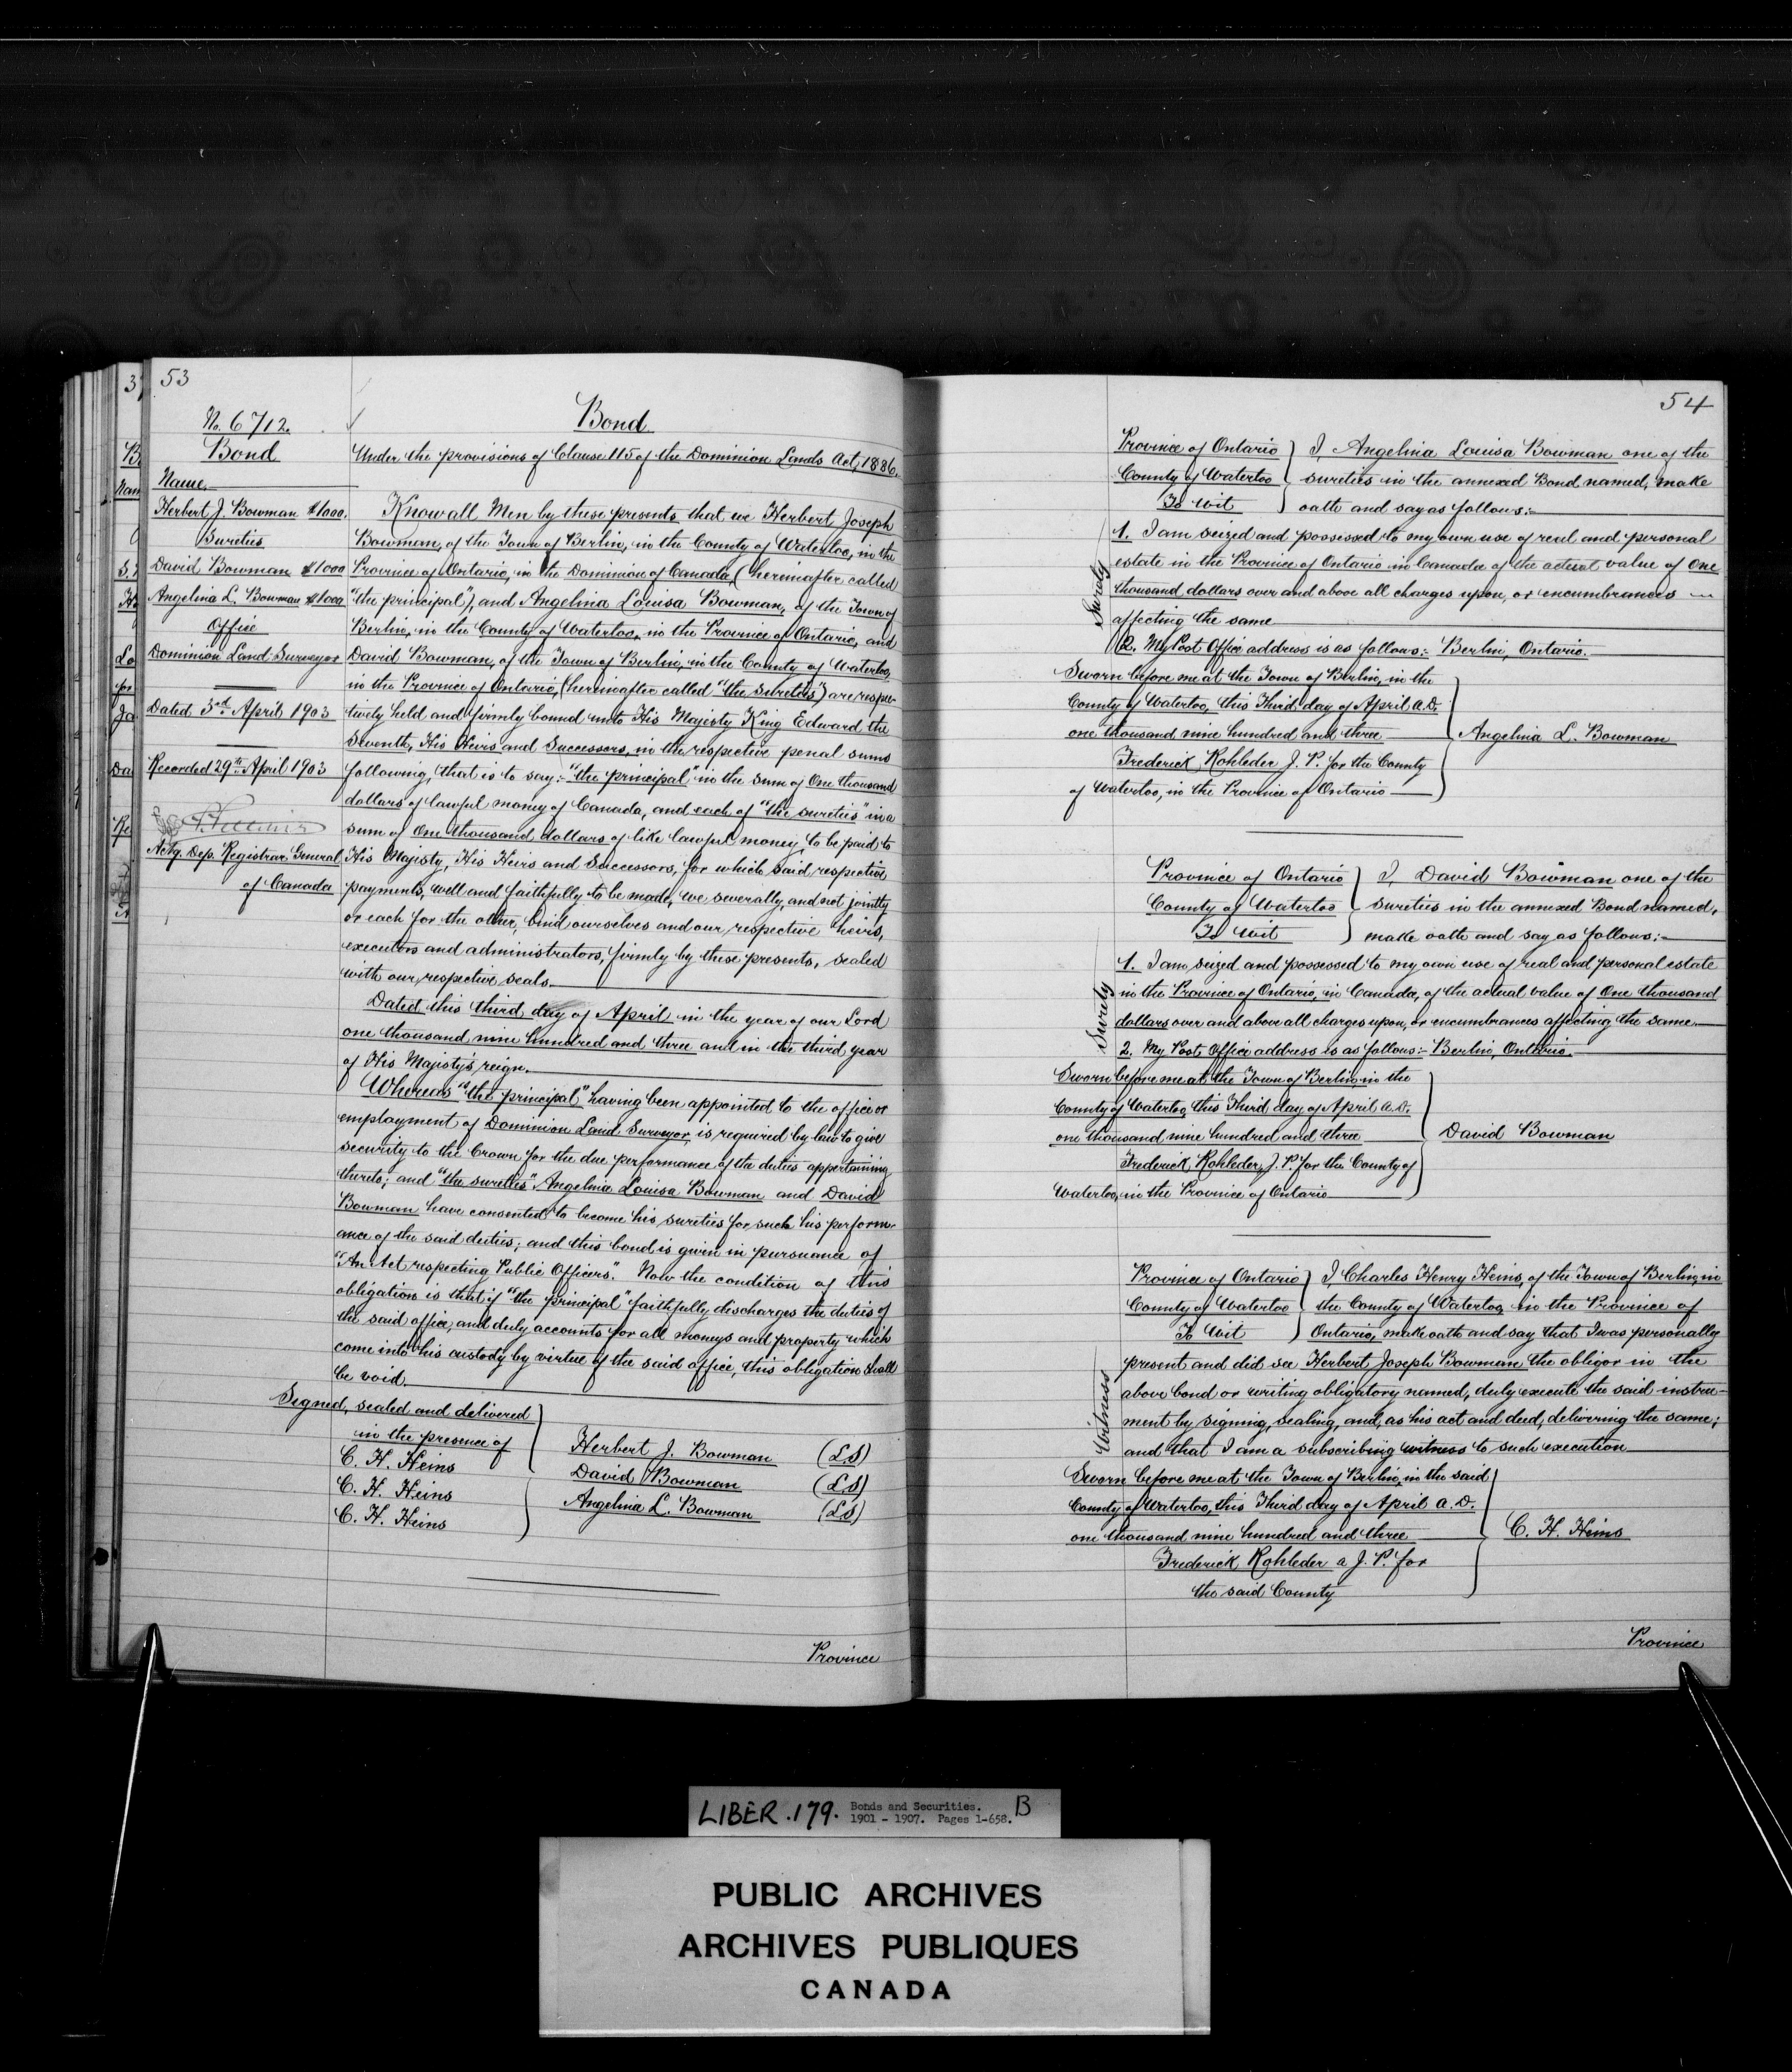 53
No. 6712.
Bond
Name
Herbert J. Bowman $1000.
Sureties
David Bowman $1000
Angelina L. Bowman $1000
Office
Dominion Land Surveyor
Dated 3rd April 1903
Recorded 29th April 1903
Actg. Dep. Registrar General
of Canada
Bond
Under the provisions of Clause 115 of the Dominion Lands Act, 1886.
Know all Men by these presents that we Herbert Joseph
Bowman, of the Town of Berlin, in the County of Waterloo, in the
Province of Ontario, in the Dominion of Canada, (hereinafter called
"the principal"), and Angelina Louisa Bowman, of the Town of
Berlin, in the County of Waterloo, in the Province of Ontario, and
David Bowman, of the Town of Berlin, in the County of Waterloo,
in the Province of Ontario, (hereinafter called "the sureties") are respec-
tively held and firmly bound unto His Majesty King Edward the
Seventh, His Heirs and Successors, in the respective penal sums
following, that is to say:- "the principal" in the sum of One thousand
dollars of lawful money of Canada, and each of "the sureties" in a
sum of One thousand dollars of like lawful money, to be paid to
His Majesty, His Heirs and Successors, for which said respective
payments, well and faithfully to be made, we severally, and not jointly
or each for the other, bind ourselves and our respective heirs,
executors and administrators, firmly by these presents, sealed
with our respective seals.
Dated this third day of April in the year of our Lord
one thousand nine hundred and three and in the third year
of His Majesty's reign.
Whereas "the principal" having been appointed to the office or
employment of Dominion Land Surveyor, is required by law to give
security to the Crown for the due performance of the duties appertaining
thereto; and "the sureties" Angelina Louisa Bowman and David
Bowman have consented to become his sureties for such his perform-
ance of the said duties; and this bond is given in pursuance of
"An Act respecting Public Officers." Now the condition of this
obligation is that if "the principal" faithfully discharges the duties of
the said office, and duly accounts for all moneys and property which
come into his custody by virtue of the said office, this obligation shall
be void.
Signed, sealed and delivered
in the presence of
C. H. Heins Herbert J. Bowman (L.S)
C. H. Heins David Bowman (L.S)
C. H. Heins Angelina L. Bowman (L.S)
Province
54
Province of Ontario I Angelina Louisa Bowman one of the
County of Waterloo sureties in the annexed Bond named, make
To Wit oath and say as follows:-
Surety
1. I am seized and possessed to my own use of real and personal
estate in the Province of Ontario in Canada of the actual value of One
thousand dollars over and above all charges upon, or encumbrances
affecting the same
2. My Post Office address is as follows:- Berlin, Ontario.
Sworn before me at the Town of Berlin, in the
County of Waterloo, this Third day of April A.D.
one thousand nine hundred and three Angelina L. Bowman
Frederick Rohleder J. P. for the County
of Waterloo, in the Province of Ontario
Province of Ontario I, David Bowman one of the
County of Waterloo sureties in the annexed Bond named,
To Wit make oath and say as follows:-
Surety
1. I am seized and possessed to my own use of real and personal estate
in the Province of Ontario, in Canada, of the actual value of One thousand
dollars over and above all charges upon, or encumbrances affecting the same
2. My Post Office address is as follows:- Berlin, Ontario.
Sworn before me at the Town of Berlin, in the
County of Waterloo, this Third day of April A.D.
one thousand nine hundred and three David Bowman
Frederick Rohleder, J. P. for the County of
Waterloo, in the Province of Ontario
Province of Ontario I, Charles Henry Heins, of the Town of Berlin, in
County of Waterloo the County of Waterloo, in the Province of
To Wit Ontario, make oath and say that I was personally
Witness
present and did see Herbert Joseph Bowman the obligor in the
above bond or writing obligatory named, duly execute the said instru-
ment by signing, sealing, and, as his act and deed, delivering the same;
and that I am a subscribing witness to such execution
Sworn before me at the Town of Berlin, in the said
County of Waterloo, this Third day of April A. D.
one thousand nine hundred and three C. H. Heins
Frederick Rohleder a J. P. for
the said County
Province
LIBER. 179. Bonds and Securities. B
1901 - 1907. Pages 1-658.
PUBLIC ARCHIVES
ARCHIVES PUBLIQUES
CANADA